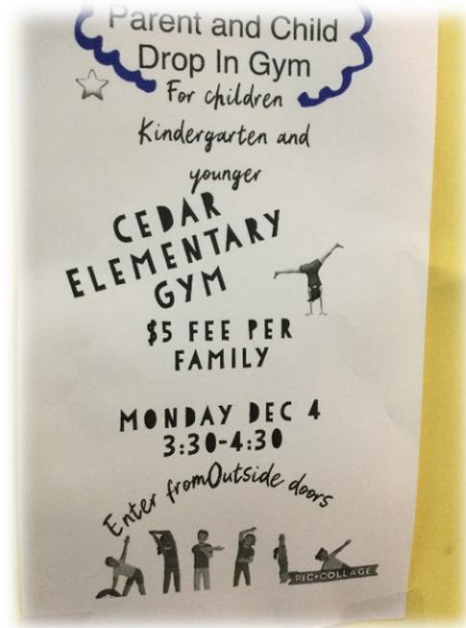 Parent and Child
Drop In Gym
For children
Kindergarten and
younger
CEDAR
ELEMENTARY
GYM
$5 FEE PER
FAMILY
MONDAY DEC 4
3:30-4:30
Enter fromOutside doors
PIC•COLLAGE